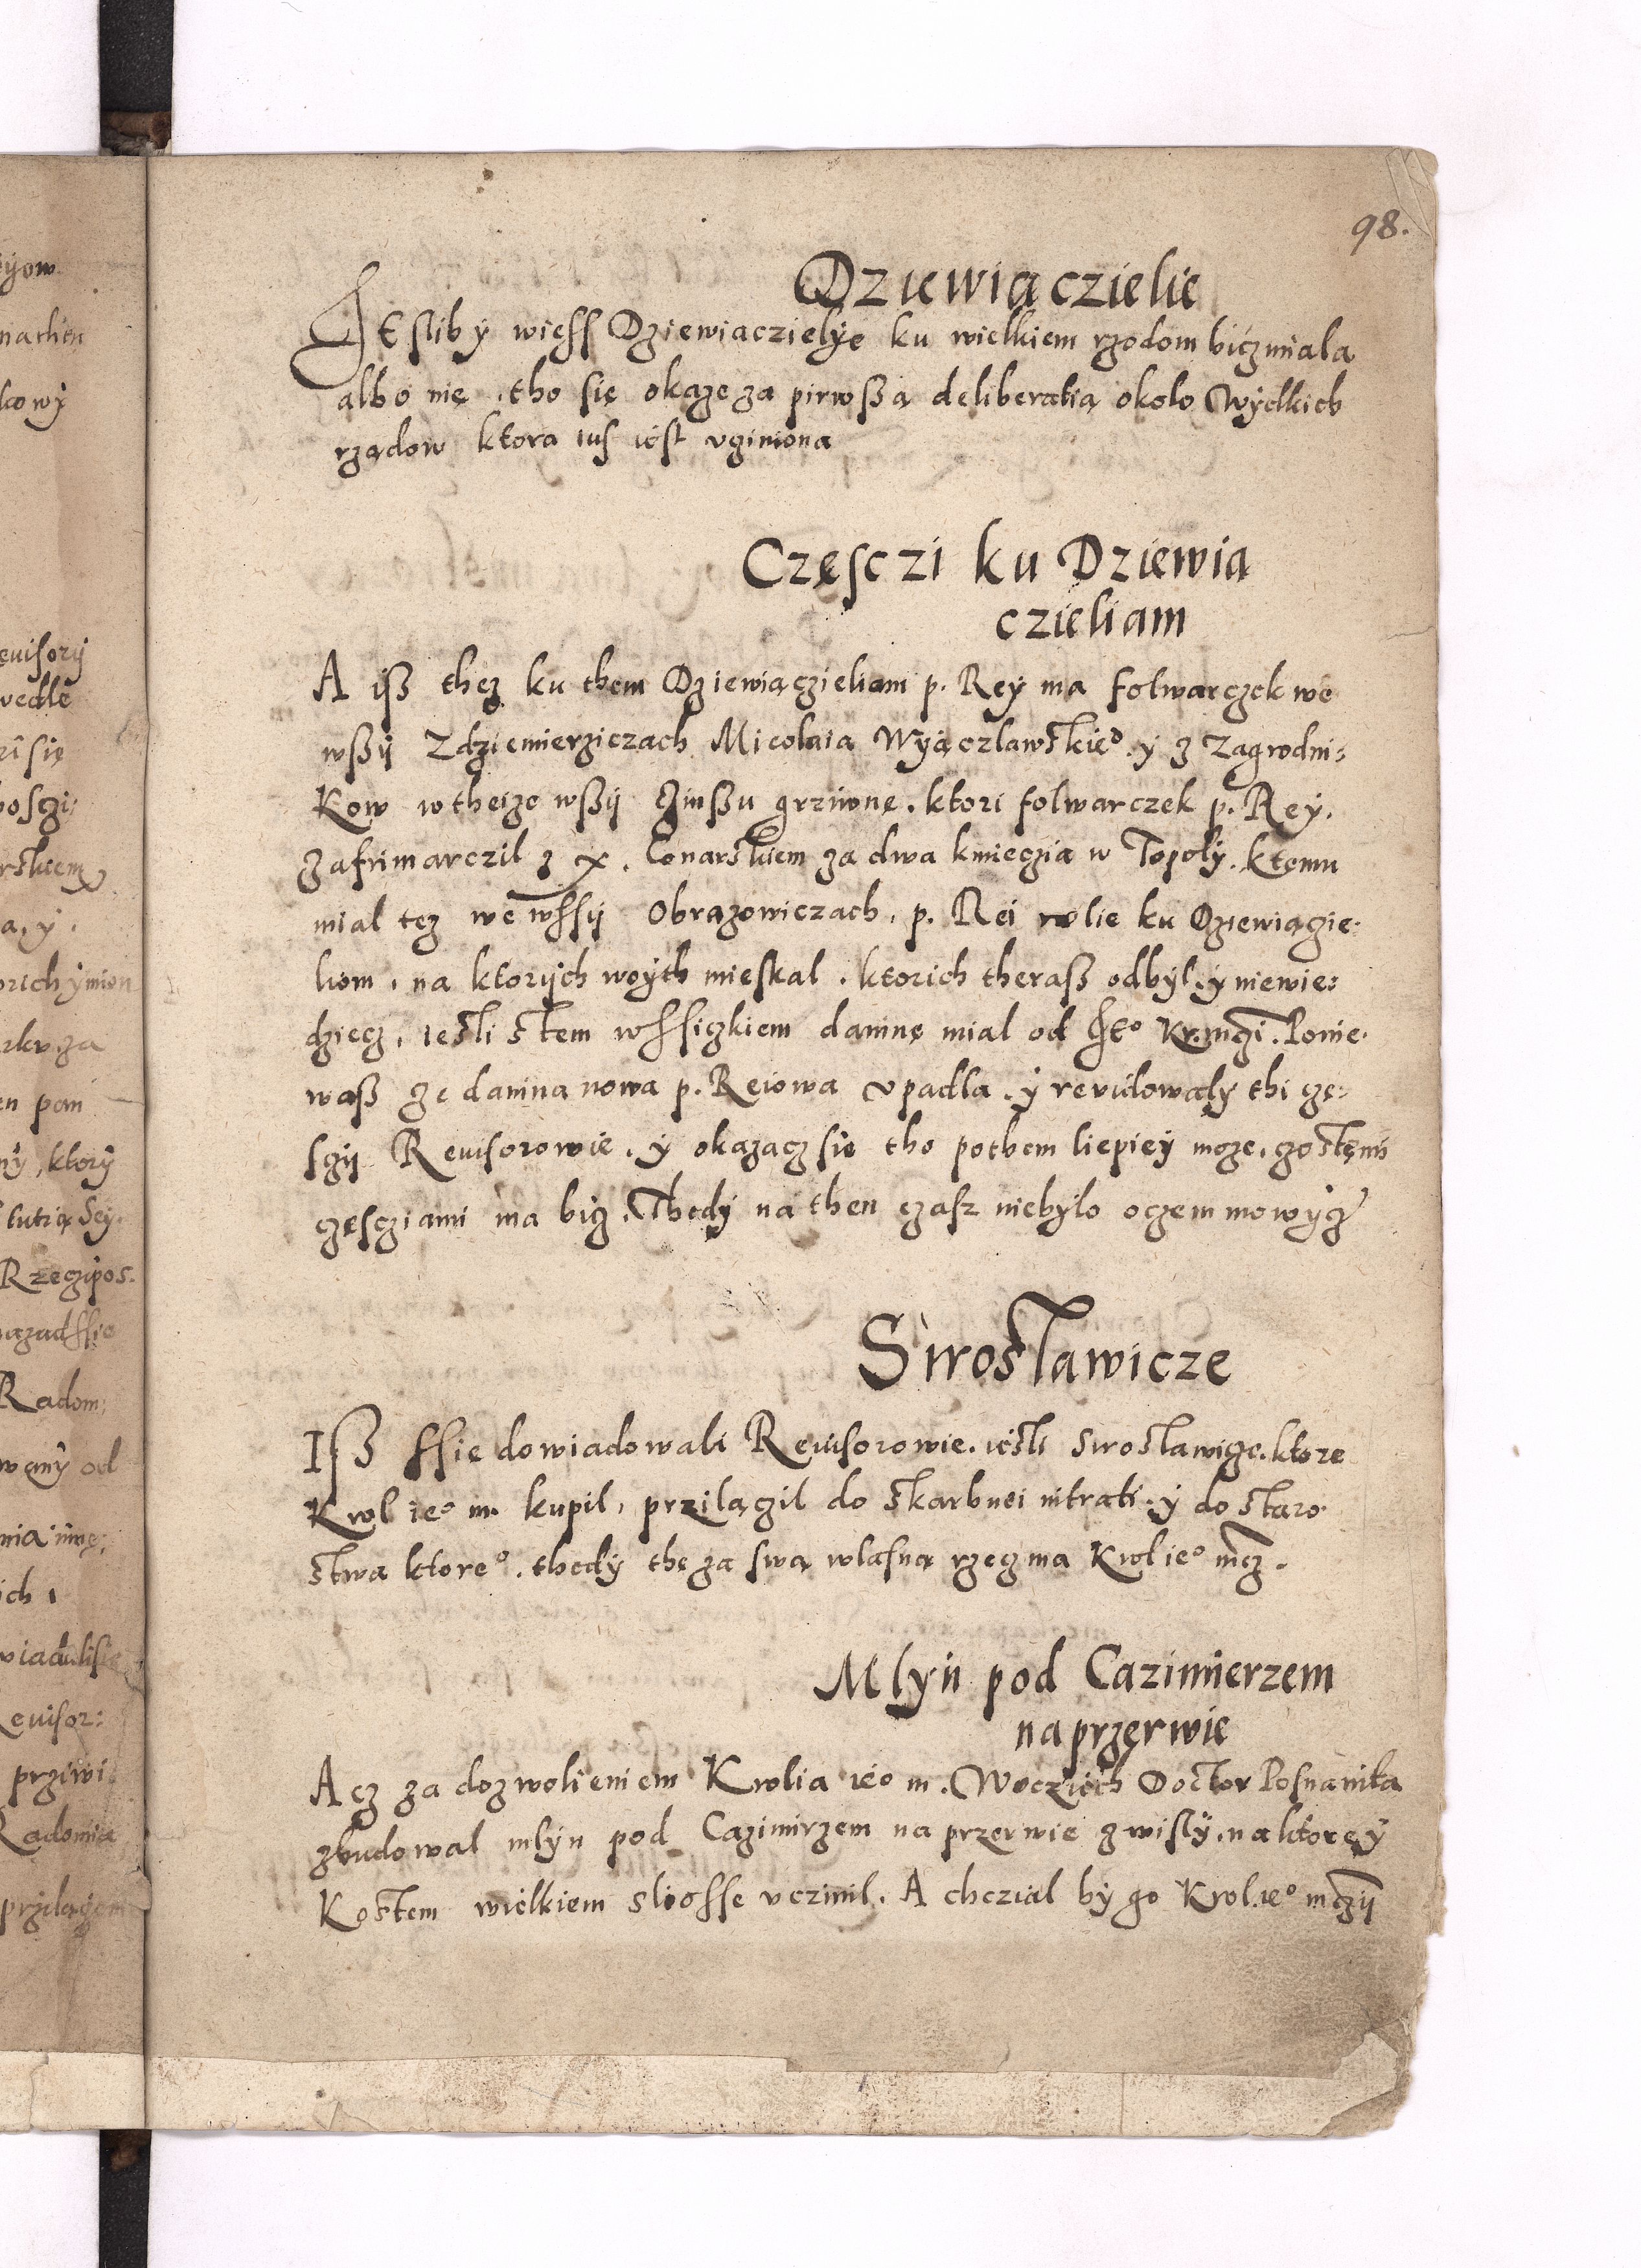 98.
Dziewiączielie
Jesliby wiess Dziewiaczielye ku wielkiem rzodom bicz miala
albo nię . tho się okaze za pirwßą deliberatią okolo Wyelkich
rządow ktora ius iest uginiona
Częsczi ku Dziewią
czieliam
A iß thez ku them Dziewiączieliam p. Rey ma folwarczek we
wßij Zdziemierziczach Micolaia Wyączlawskie° . y z Zagrodni:
kow wtheize wßij Czinßu grziwnę . ktori folwarczek p. Rey .
zafrimarczil z x . Conarskiem za dwa kmieczia w Topoly . ktemu
mial tez we wssij Obrazowiczach . p. Rei rolie ku Dziewiączie:
liom . na ktorijch woyth mieskal . ktorich theraß odbyl . y niewie:
dziecz . iesli stem wssiczkiem daninę mial od Je° Kr. mczi . Ponie:
waß ze danina nowa p. Reiowa upadla . y rewidowaly thi czę:
sczij Rewisorowie . y okazacz się tho pothem liepiey moze . czo stęmi
częscziami ma bicz . Thedy na then czasz niebylo oczem mowycz
Swoslawicze
Iß ssie dowiadowali Rewisorowie . iesli Swoslawicze . ktore
Krol ie° m. kupil . przilączil do skarbnei intrati . y do staro:
stwa ktore° . thedy thę za swą wlasną rzecz ma Krol ie° mcz .
Mlyn pod Cazimierzem
na przerwie
Acz za dozwolieniem Krolia ie° m . Wocziech Doctor Posnanita
zbudowal mlyn pod Cazimirzem na przerwie z wisly . na ktorey
Kostem wielkiem sliosse uczinil . A chczial by go Krol . ie° mczij